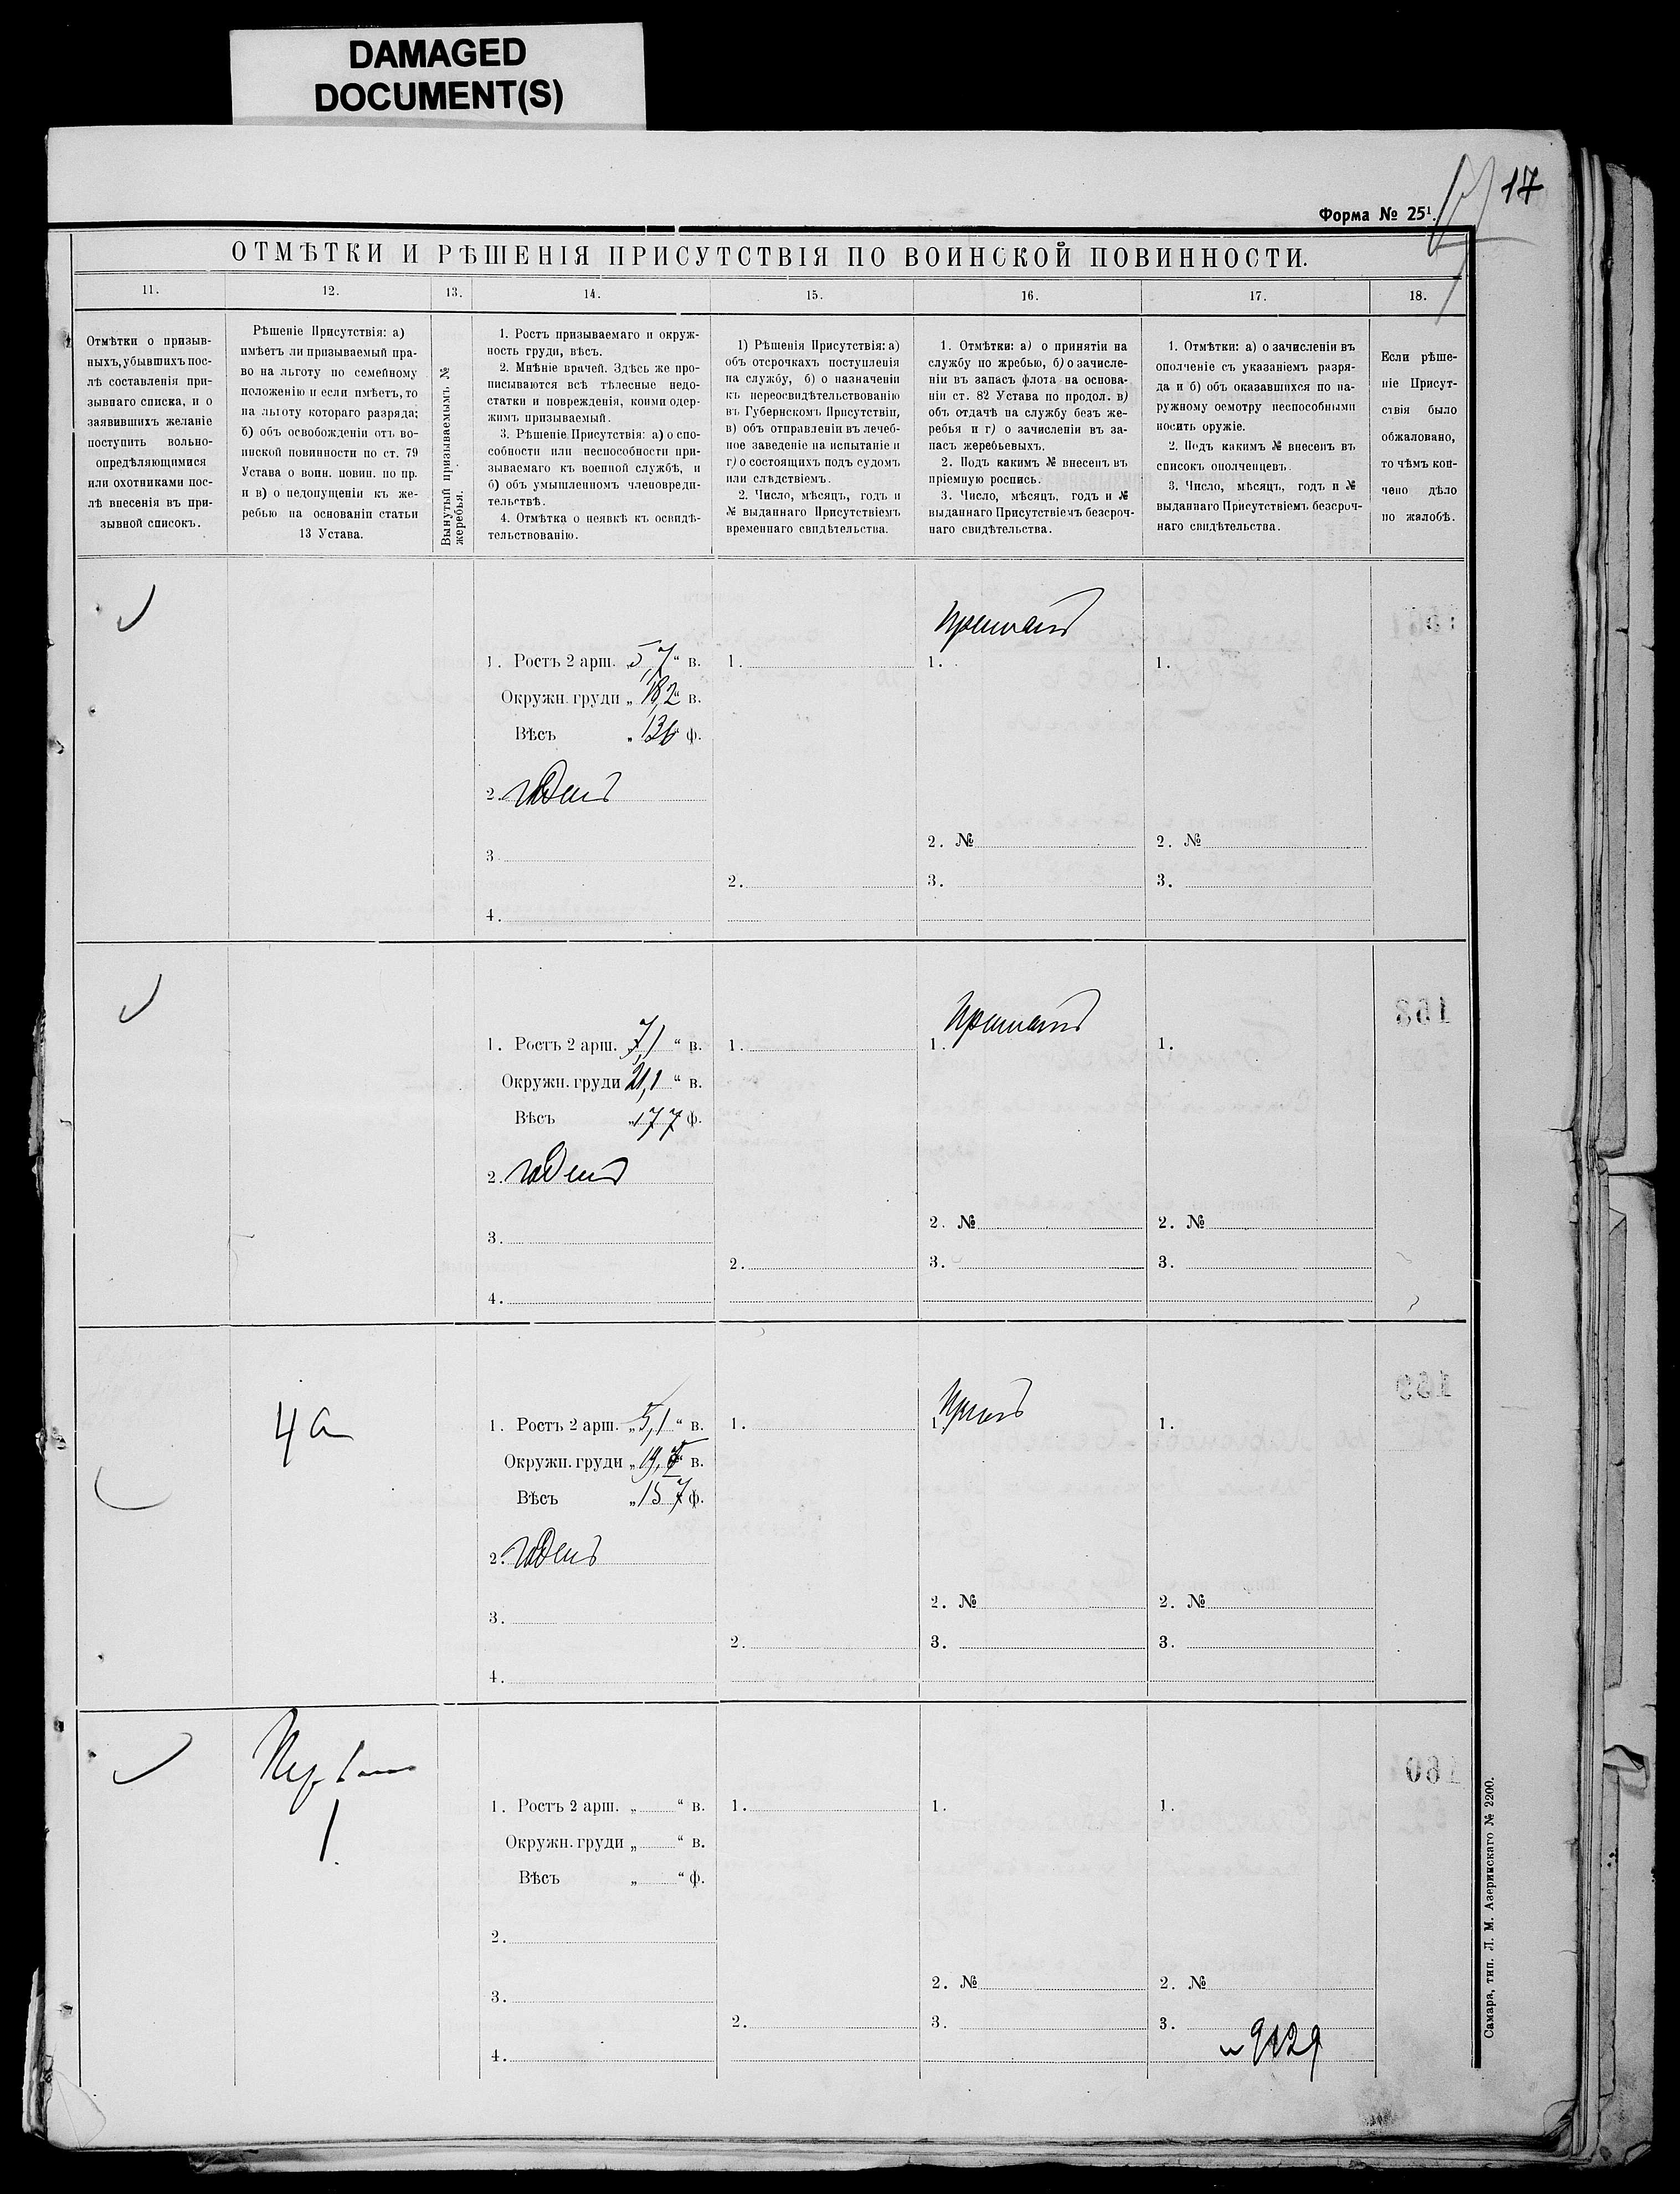 DAMAGED
DOCUMENT(S)
17
Форма № 25¹.
ОТМѢТКИ И РѢШЕНІЯ ПРИСУТСТВІЯ ПО ВОИНСКОЙ ПОВИННОСТИ.
11. 12. 13. 14. 15. 16. 17. 18.
Отмѣтки о призыв-
ныхъ, убывшихъ пос-
лѣ составленія при-
зывнаго списка, и о
заявившихъ желаніе
поступить вольно-
опредѣляющимися
или охотниками пос-
лѣ внесенія въ при-
зывной списокъ.
Рѣшеніе Присутствія: а)
имѣетъ ли призываемый пра-
во на льготу по семейному
положенію и если имѣетъ, то
на льготу котораго разряда;
б) объ освобожденіи отъ во-
инской повинности по ст. 79
Устава о воин. повин. по пр.
и в) о недопущеніи къ же-
ребью на основаніи статьи
13 Устава.
Вынутый призываемымъ №
жеребья.
1. Ростъ призываемаго и окруж-
ность груди, вѣсъ.
2. Мнѣніе врачей. Здѣсь же про-
писываются всѣ тѣлесные недо-
статки и поврежденія, коими одер-
жимъ призываемый.
3. Рѣшеніе Присутствія: а) о спо-
собности или неспособности при-
зываемаго къ военной службѣ, и
б) объ умышленномъ членовреди-
тельствѣ.
4. Отмѣтка о неявкѣ къ освидѣ-
тельствованію.
1) Рѣшенія Присутствія: а)
объ отсрочкахъ поступленія
на службу, б) о назначеніи
къ переосвидѣтельствованію
въ Губернскомъ Присутствіи,
в) объ отправленіи въ лечеб-
ное заведеніе на испытаніе и
г) о состоящихъ подъ судомъ
или слѣдствіемъ.
2. Число, мѣсяцъ, годъ и
№ выданнаго Присутствіемъ
временнаго свидѣтельства.
1. Отмѣтки: а) о принятіи на
службу по жребью, б) о зачисле-
ніи въ запасъ флота на основа-
ніи ст. 82 Устава по продол. в)
объ отдачѣ на службу безъ же-
ребья и г) о зачисленіи въ за-
пасъ жеребьевыхъ.
2. Подъ какимъ № внесенъ въ
пріемную роспись.
3. Число, мѣсяцъ, годъ и №
выданнаго Присутствіемъ безсроч-
наго свидѣтельства.
1. Отмѣтки: а) о зачисленіи въ
ополченіе съ указаніемъ разря-
да и б) объ оказавшихся по на-
ружному осмотру неспособными
носить оружіе.
2. Подъ какимъ № внесенъ въ
списокъ ополченцевъ.
3. Число, мѣсяцъ, годъ и №
выданнаго Присутствіемъ безсроч-
наго свидѣтельства.
Если рѣше-
ніе Присут-
ствія было
обжаловано,
то чѣмъ кон-
чено дѣло
по жалобѣ.
1. Ростъ 2 арш. „5,7“ в. 1. 1. 1.
Окружн. груди „18,2“ в.
Вѣсъ „136“ ф.
2. годенъ
2. № 2. №
3
2. 3. 3.
4.
1. Ростъ 2 арш. 7,1 “ в. 1. 1. 1.
Окружн. груди 21,1 “ в.
Вѣсъ „177 ф.
2. годенъ
2. № 2. №
3.
2. 3. 3.
4.
4 а
1. Ростъ 2 арш. „5,1 “ в. 1. 1. 1.
Окружн. груди „19, “ в.
Вѣсъ „157 ф.
2. годенъ
2. № 2. №
3.
2. 3. 3.
4.
1
1. Ростъ 2 арш. „ “ в. 1. 1. 1.
Окружн. груди „ “ в.
Вѣсъ „ “ ф.
2.
2. № 2. №
3.
2. 3. 3.
4.
Самара, тип. Л. М. Азеринскаго № 2200.